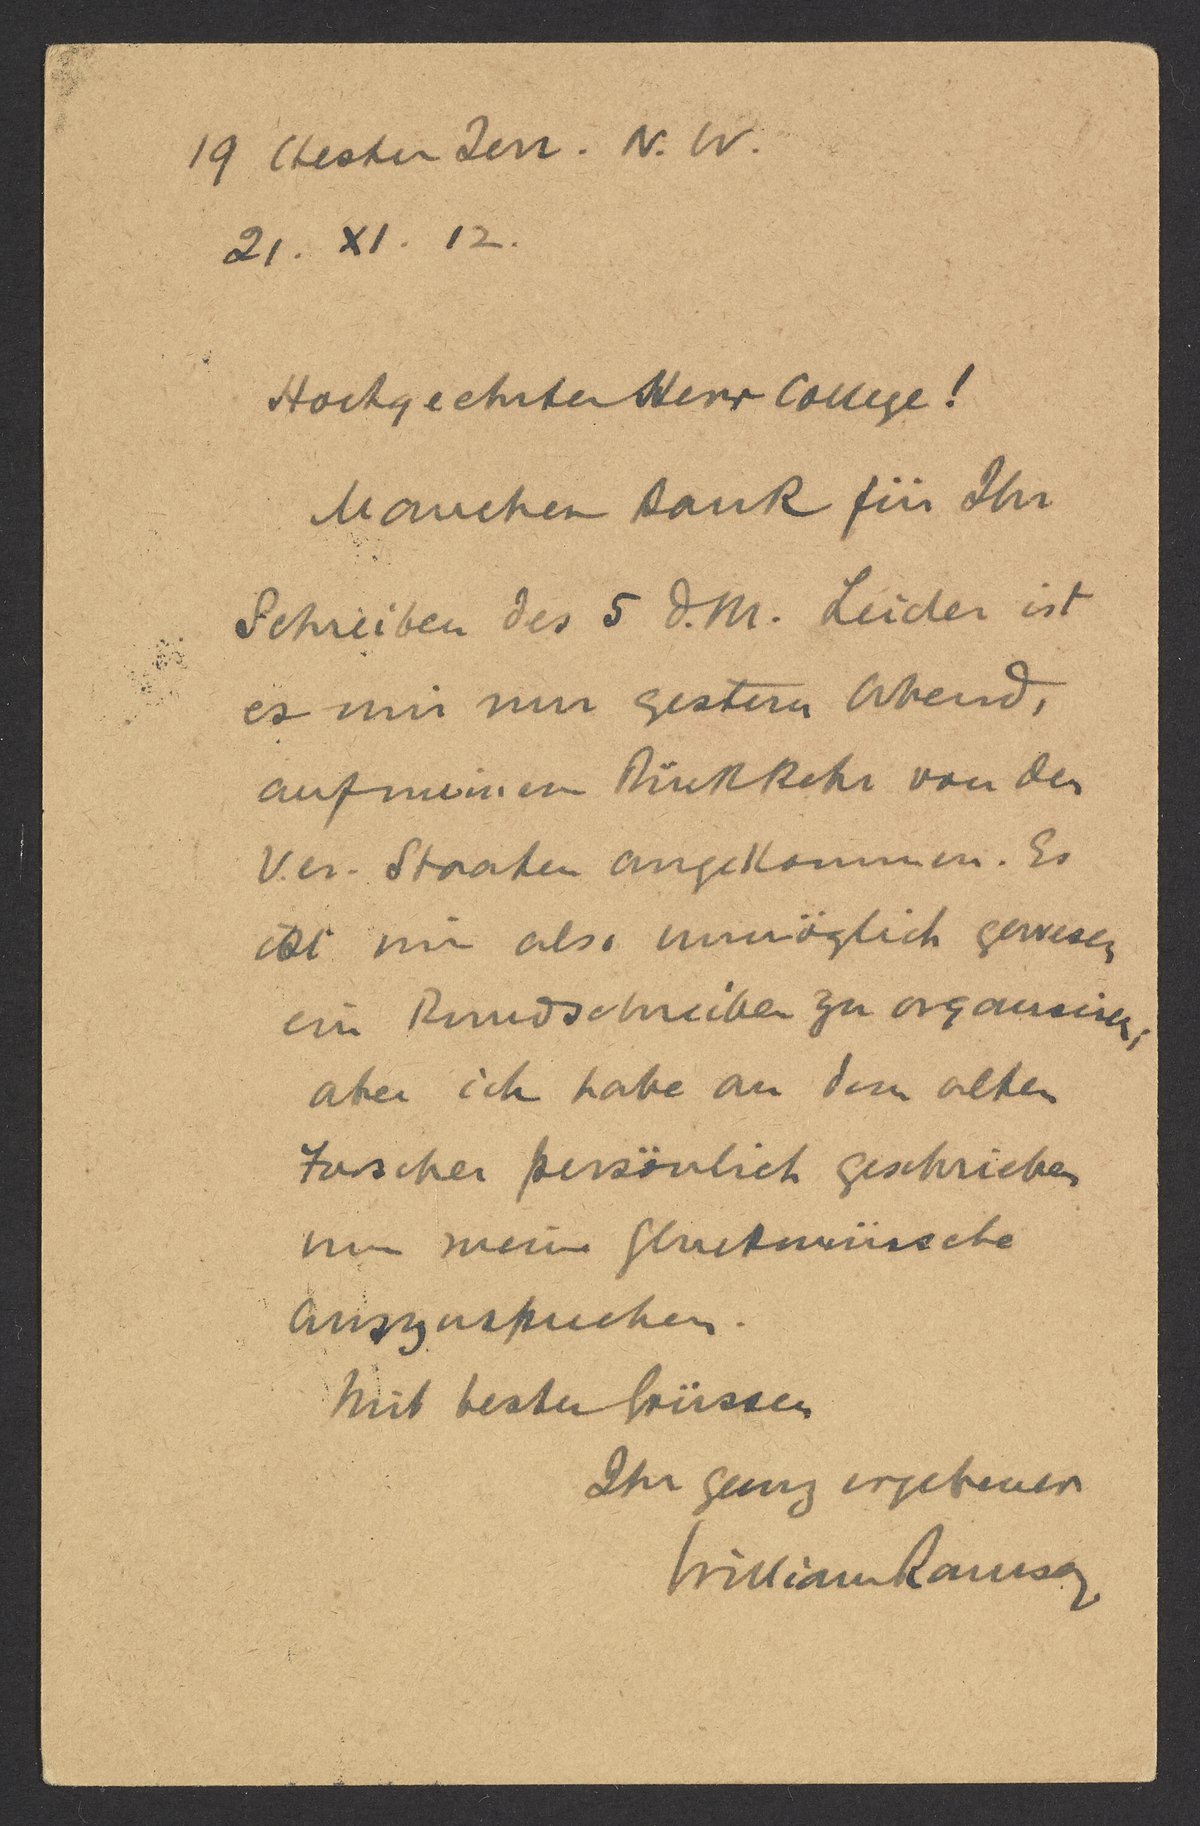 19 Chester Terr. N. W.
21. XI. 12.
Hochgeehrter Herr College!
Manchen Dank für Ihr
Schreiben des 5 d.M. Leider ist
es mir nur gestern Abend,
auf meinem Rückkehr von den
Ver. Staaten angekommen. Es
ist mir also unmöglich gewesen
ein Rundschreiben zu organisiren,
aber ich habe an dem alten
Forscher persönlich geschrieben
um meine Gluckwünsche
auszusprechen.
Mit besten Grüssen
Ihr ganz ergebener
William Ramsay